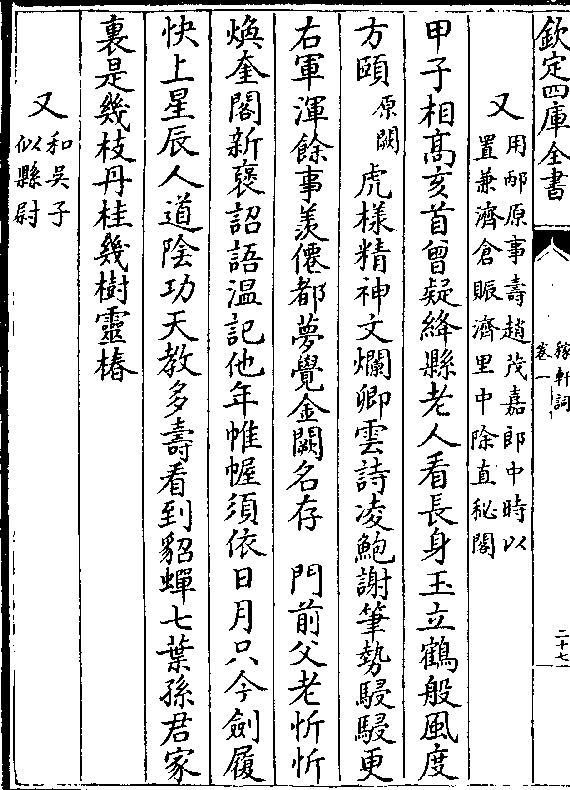 欽定四庫全書
稼軒詞
卷一
二十七
又用邴原事壽趙茂嘉郎中時以
置兼濟倉賑濟里中除直秘閣
甲子相髙亥首曾疑絳縣老人看長身玉立鶴般風度
方頤原闕虎様精神文爛卿雲詩凌鮑謝筆勢駸駸更
右軍渾餘事羡僊都夢覺金闕名存　門前父老忻忻
煥奎閣新褒詔語溫記他年帷幄須依日月只今劍履
快上星辰人道陰功天教多壽看到貂蟬七葉孫君家
裏是幾枝丹桂幾樹靈椿
又和吳子
似縣尉